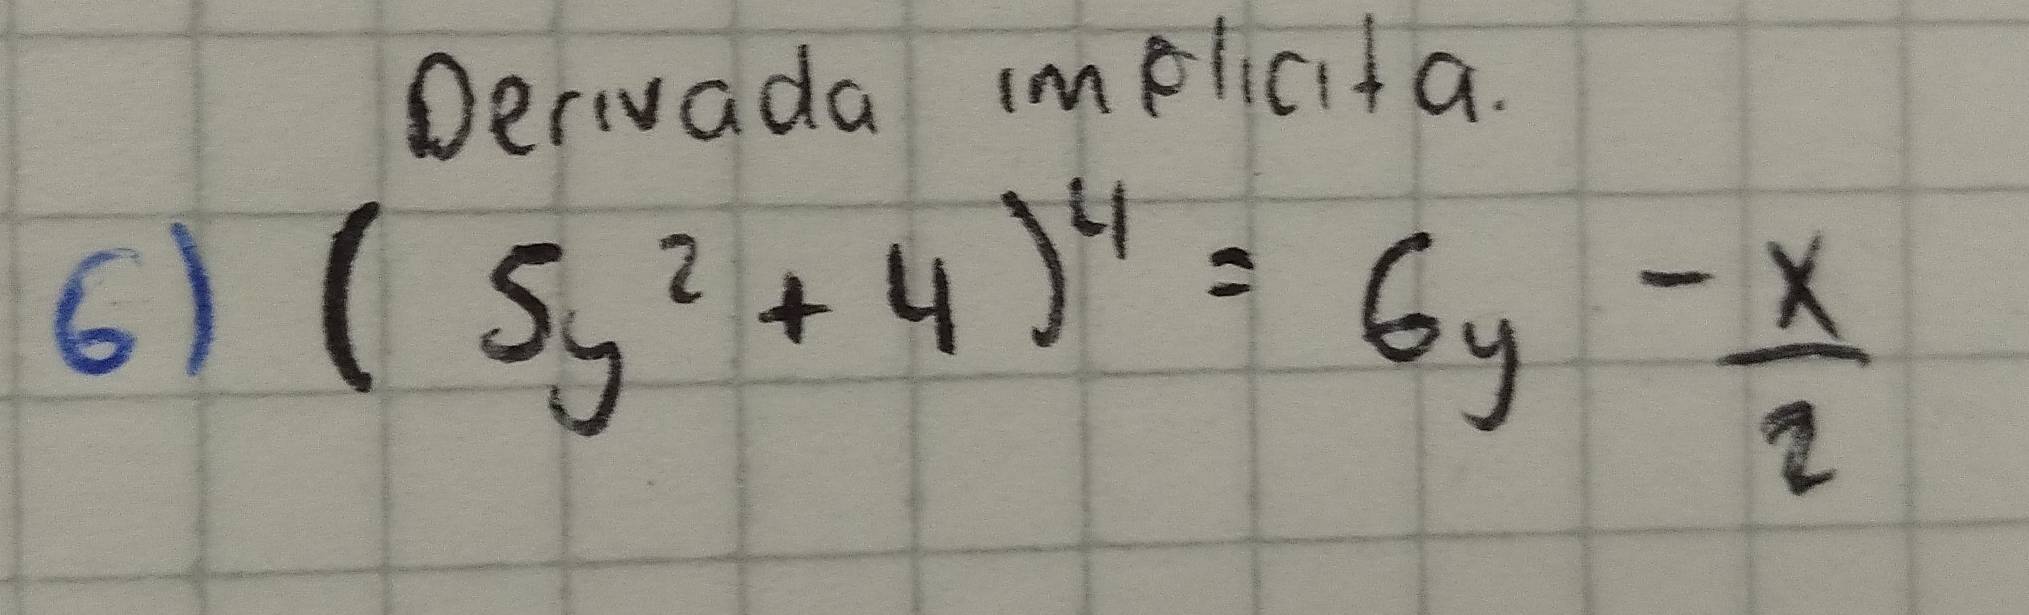 Derivada implicita.
6) (5y² + 4)⁴ = 6y - x/2